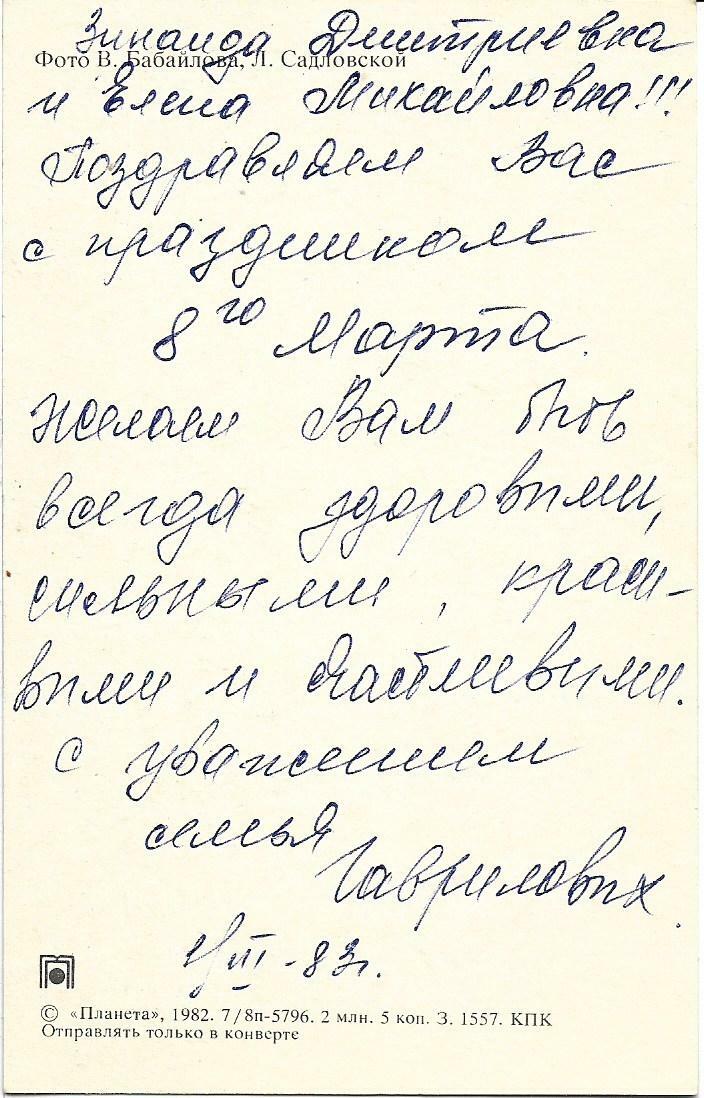 Зинаида Дмитриевна
Фото В. Бабайлова, Л. Садловской
и Елена Михайловна!!!
Поздравляем Вас
с праздником
8го Марта.
Желаем Вам быть
всегда здоровыми,
сильными, краси-
выми и счастливыми.
с уважением
семья
Гавриловых.
/III-83г.
© «Планета», 1982. 7/8п-5796. 2 млн. 5 коп. З. 1557. КПК
Отправлять только в конверте